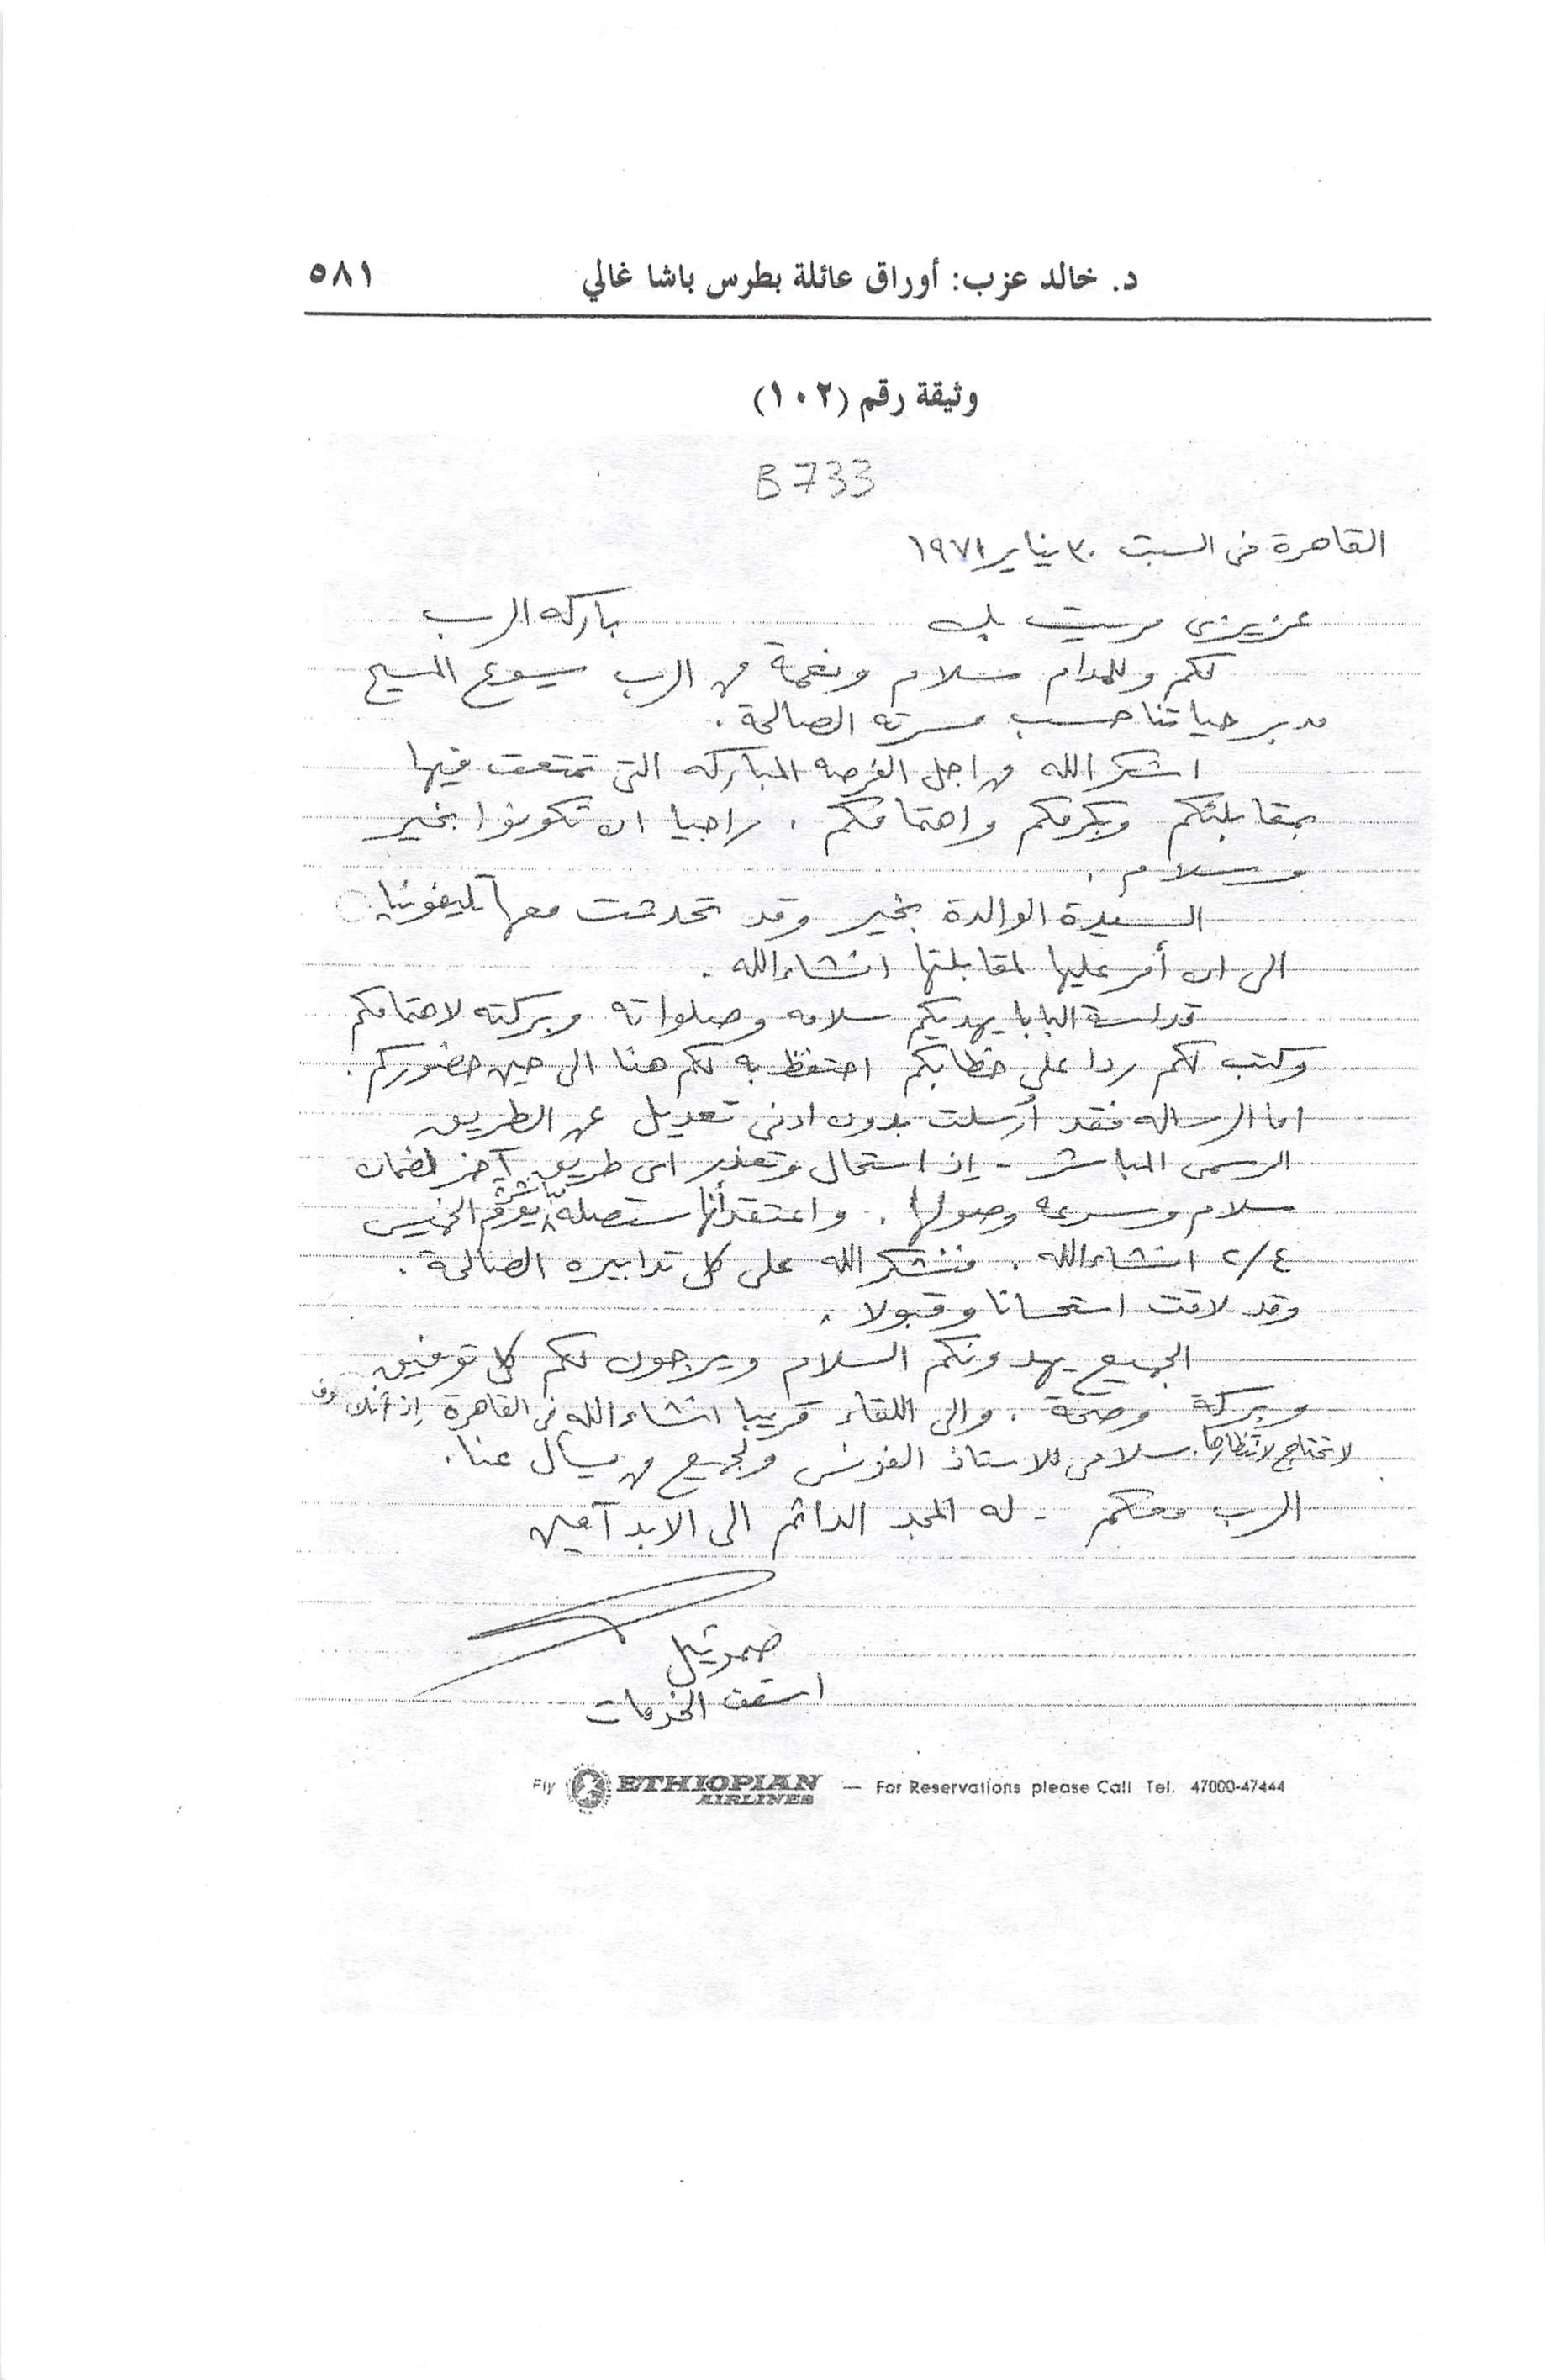 د. خالد عزب: أوراق عائلة بطرس باشا غالي ٥٨١
وثيقة رقم (١٠٢)
B 733
القاهرة فى السبت ٣٠ يناير ١٩٧١
عزيزى مريت بك باركه الرب
لكم وللمدام سلام ونعمة من الرب يسوع المسيح
مدبر حياتنا حسب مسرته الصالحة .
اشكر الله من اجل الفرصه المباركه التى تمتعت فيها
بمقابلتكم وبكرمكم واهتمامكم . راجيا ان تكونوا بخير
وسلام .
السيدة الوالدة بخير وقد تحدثت معها تليفونيا
الى ان أمر عليها لمقابلتها انشاء الله .
قداسة البابا يهديكم سلامه وصلواته وبركته لاهتمامكم
وكتب لكم ردا على خطابكم احتفظ به لكم هنا الى حين حضوركم .
اما الرساله فقد أرسلت بدون ادنى تعديل عن الطريق
الرسمى المباشر - إذ استحال وتعذر اى طريق آخر لضمان
سلام وسرعه وصولها . واعتقد أنها ستصله مباشرة يوم الخميس
٢/٤ انشاء الله . فنشكر الله على كل تدابيره الصالحة .
وقد لاقت استحسانا وقبولا .
الجميع يهدونكم السلام ويرجون لكم كل توفيق
وبركة وصحة . والى اللقاء قريبا انشاء الله فى القاهرة إذ
لا تحتاج لانتظارها . سلامى للاستاذ الفونس ولجميع من يسأل عنا .
الرب معكم - له المجد الدائم الى الابد آمين
صموئيل
اسقف الخدمات
Fly ETHIOPIAN AIRLINES — For Reservations please Call Tel. 47000-47444